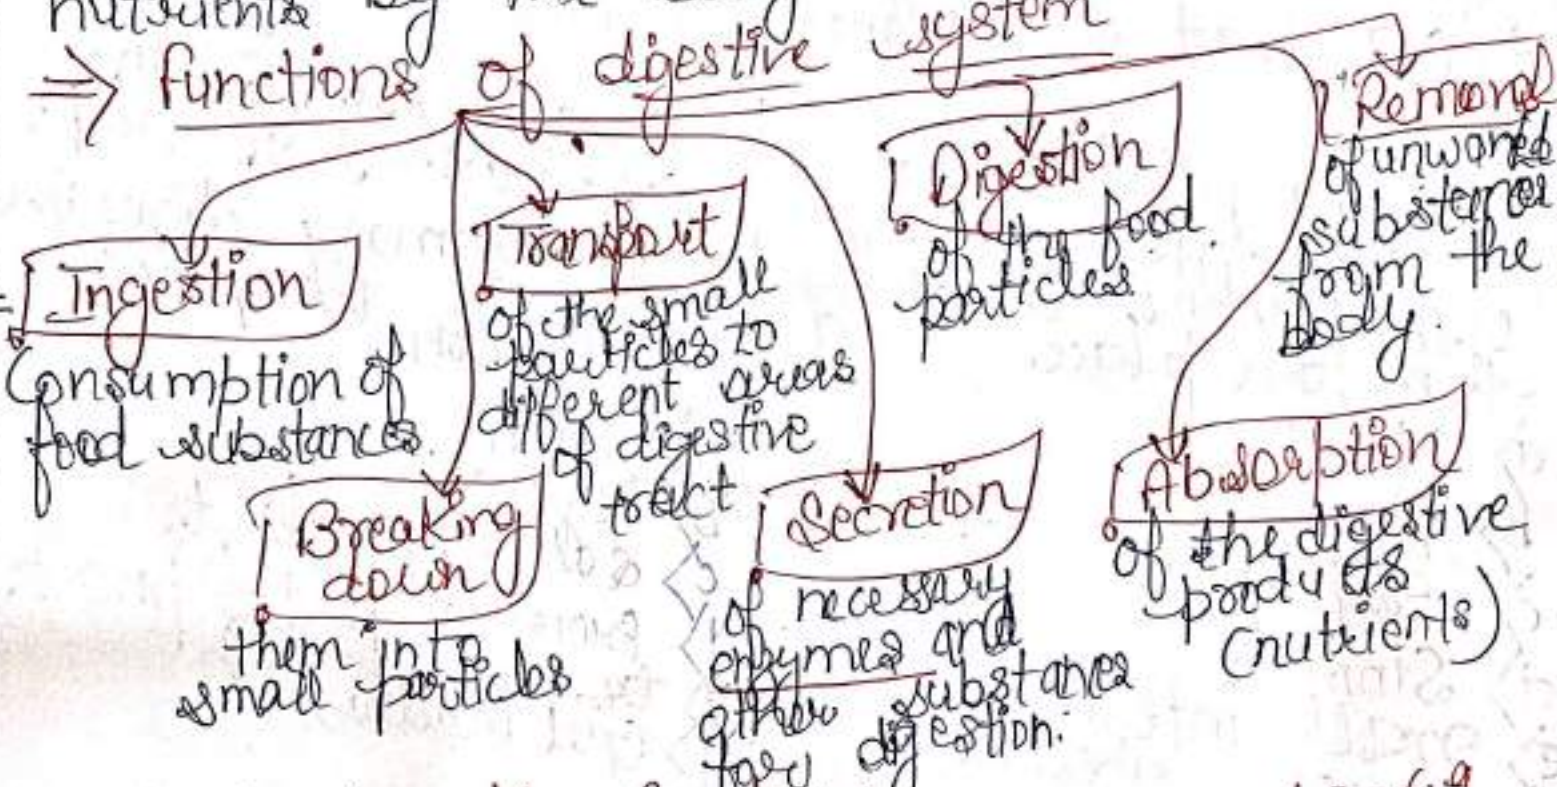 nutrients by the
⇒ functions of digestive system
Ingestion
Consumption of
food substances.
Breaking
down
them into
small particles
Transport
of the small
particles to
different areas
of digestive
tract
Secretion
of necessary
enzymes and
other substances
for digestion.
Digestion
of the food
particles
Absorption
of the digestive
products
(nutrients)
Removal
of unwanted
substances
from the
body.